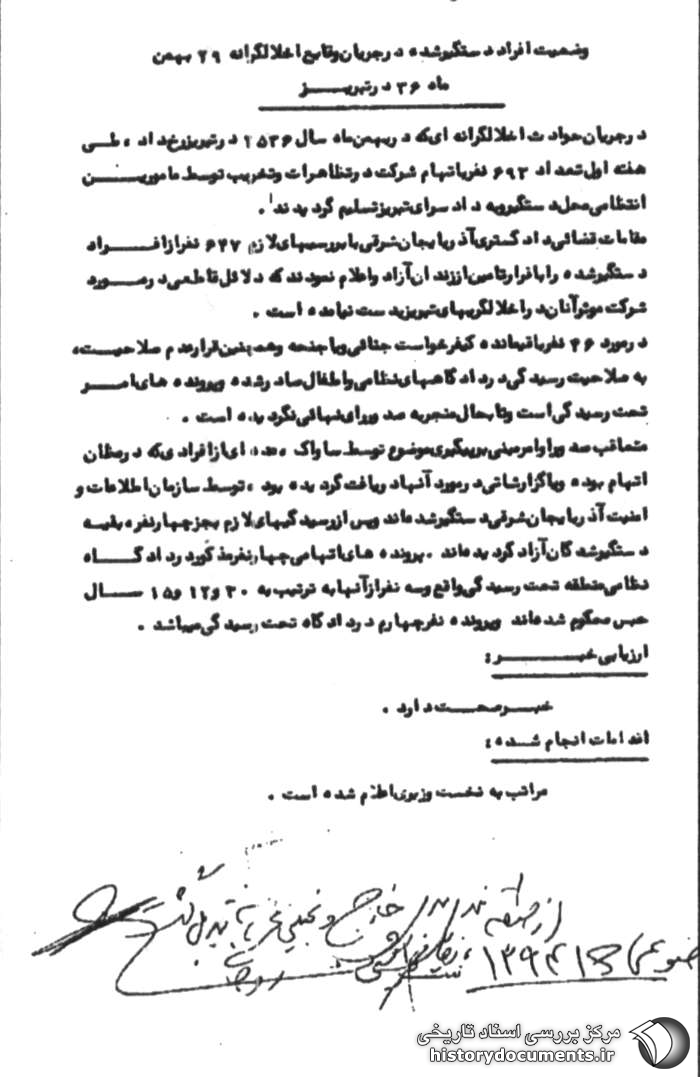 وضعیت افراد دستگیرشده درجریان وقایع اخلالگرانه ۲۹ بهمن
ماه ۳۶ درتبریــــز
درجریان حوادث اخلالگرانه ای که در بهمن ماه سال ۲۵۳۶ درتبریزرخ داد ، طــی
هفته اول تعداد ۶۹۳ نفرباتهام شرکت درتظاهرات وتخریب توسط مامورین
انتظامی محل دستگیروبه دادسرای تبریزتسلیم گردیدند .
مقامات قضائی دادگستری آذربایجان شرقی بابررسیهای لازم ۶۴۷ نفرازافــراد
دستگیرشده راباقرارتامین اززندان آزاد واعلام نمودند که دلائل قاطعی درمــورد
شرکت موثرآنان دراخلالگریهای تبریزبدست نیامده است .
درمورد ۴۶ نفرباقیمانده کیفرخواست جنائی ویاجنحه وهمچنین قرارعدم صلاحیت،
به صلاحیت رسیدگی دردادگاههای نظامی واطفال صادرشده وپرونده های امــر
تحت رسیدگی است وتابحال منجربه صدوررای نهائی نگردیده است .
متعاقب صدوراوامرمبنی برپیگیری موضوع توسط ساواک ، عده ای ازافرادی که درمظان
اتهام بوده ویاگزارشاتی درمورد آنهادریافت گردیده بود ، توسط سازمان اطلاعات و
امنیت آذربایجان شرقی دستگیرشده‌اند وپس ازرسیدگیهای لازم بجزچهارنفر، بقیه
دستگیرشدگان آزاد گردیده‌اند . پرونده های اتهامی چهارنفرمذکوردردادگــاه
نظامی منطقه تحت رسیدگی واقع وسه نفرازآنهابه ترتیب به ۳۰ و۱۲ و۱۵ ســـال
حبس محکوم شده‌اند وپرونده نفرچهارم دردادگاه تحت رسیدگی میباشد .
ارزیابی خبـــر :
خبــرصحــت دارد .
اقدامات انجام شده :
مراتب به نخست وزیری اعلام شده است .
از منطقه
خارج و
مرکز بررسی اسناد تاریخی
historydocuments.ir